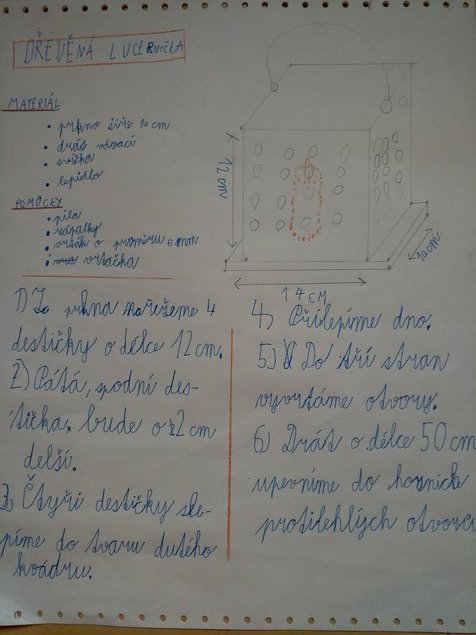 DŘEVĚNÁ LUCERNIČKA
MATERIÁL
• prkno šíře 10 cm
• drát vázací
• svíčka
• lepidlo
POMŮCKY
• pila
• zápalky
• vrták o průměru 6 mm
• vrtačka
12 cm
14 CM
10 cm
1) Z prkna nařežeme 4
destičky o délce 12 cm.
2) Pátá, spodní des-
tička, bude o 2 cm
delší.
3) Čtyři destičky sle-
píme do tvaru dutého
kvádru.
4) Přilepíme dno.
5) Do tří stran
vyvrtáme otvory.
6) Drát o délce 50 cm
upevníme do horních
protilehlých otvorů